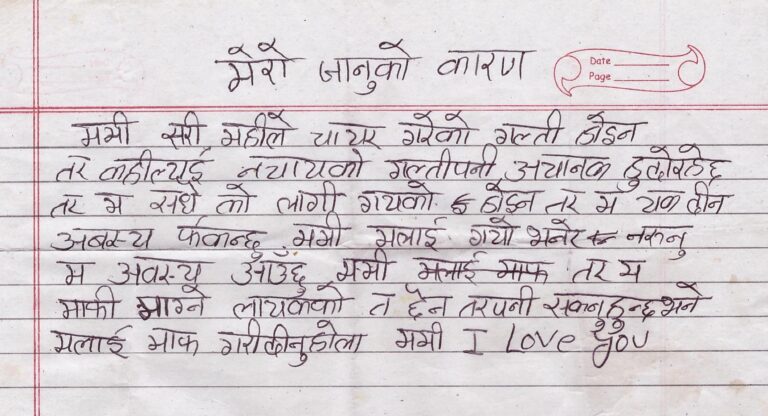 मेरो जानुको कारण
Date
Page
ममी सरी महीले चायर गरेको गल्ती होइन
तर कहील्यई नचायको गल्तीपनी अचानक हुदोरहेछ
तर म सधै को लागी गयको होइन तर म यक दीन
अबस्य र्फकन्छु ममी मलाई गयो भनेर नरुनु
म अवस्य आँउछु ममी मलाई माफ तर म
माफी माग्ने लायकको त छैन तरपनी सक्नुहुन्छ भने
मलाई माफ गरीदीनुहोला ममी I Love you